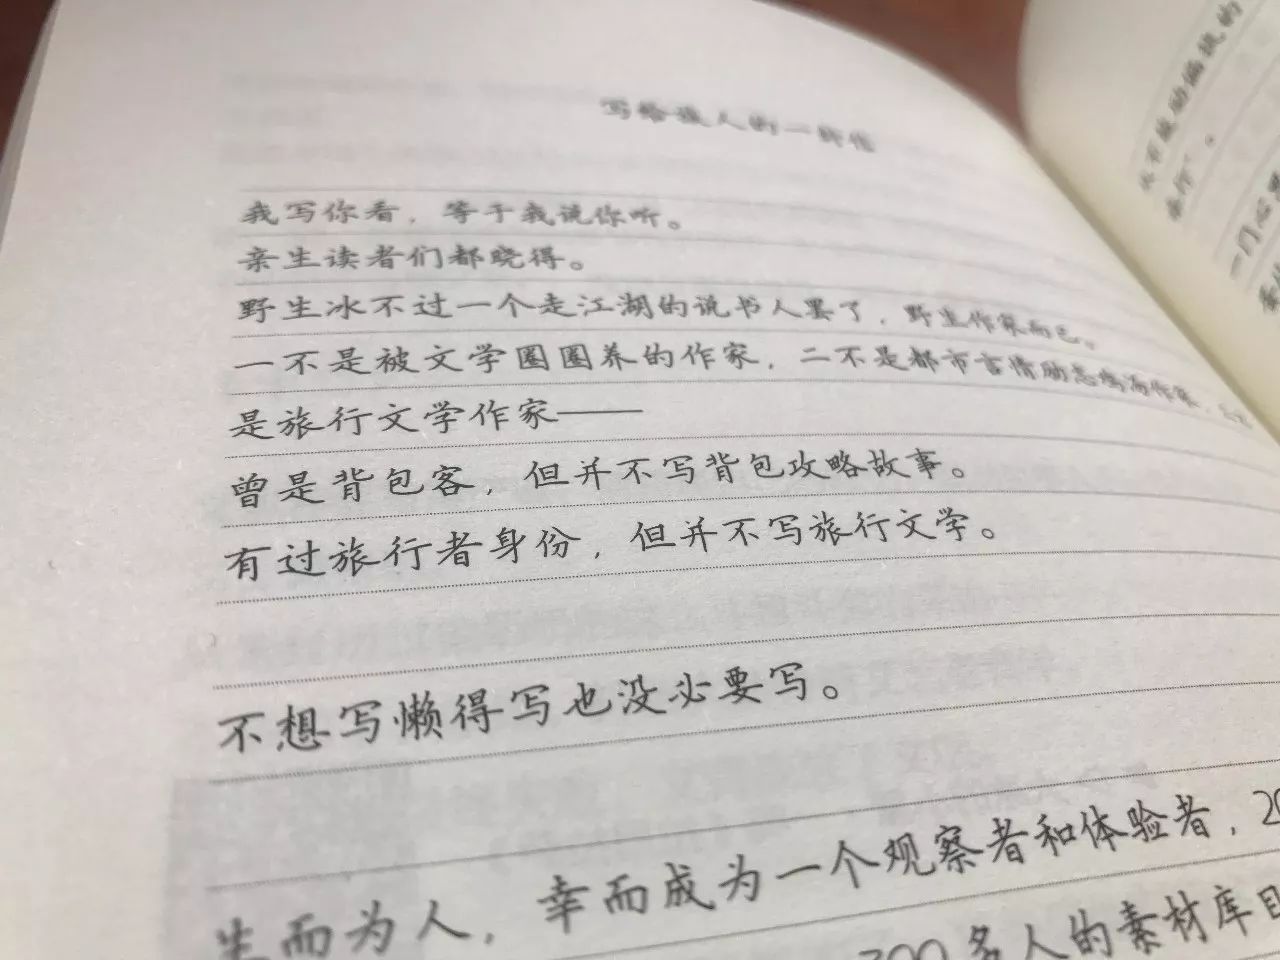 写给族人的一封信
我写你看，等于我说你听。
亲生读者们都晓得。
野生冰不过一个走江湖的说书人罢了，野生作家而已。
一不是被文学圈圈养的作家，二不是都市言情励志鸡汤作家，三不
是旅行文学作家——
曾是背包客，但并不写背包攻略故事。
有过旅行者身份，但并不写旅行文学。
不想写懒得写也没必要写。
生而为人，幸而成为一个观察者和体验者，20
300多人的素材库目